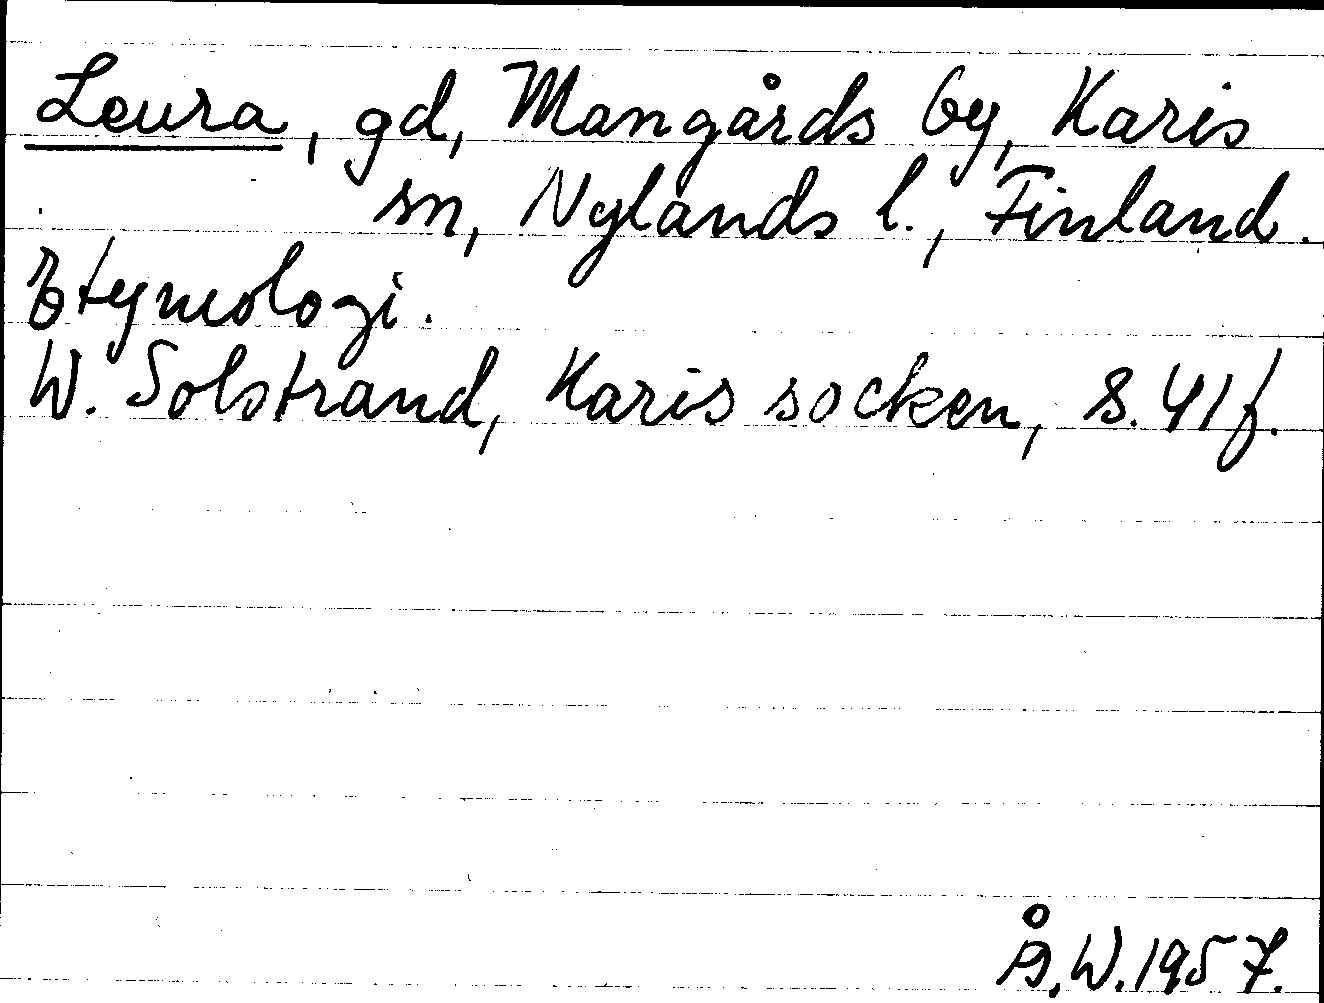 Leura, gd, Mangårds by, Karis
sn, Nylands l., Finland.
Etymologi.
W. Solstrand, Karis socken, s. 41 f.
Å.W. 1957.